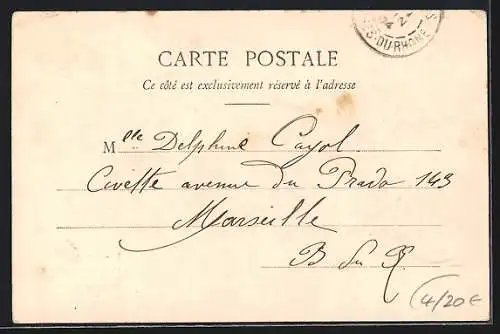 S-DU-RHONE
CARTE POSTALE
Ce côté est exclusivement réservé à l'adresse
Mlle Delphine Cayol
Civette avenue du Prado 143
Marseille
B du R
4/20€